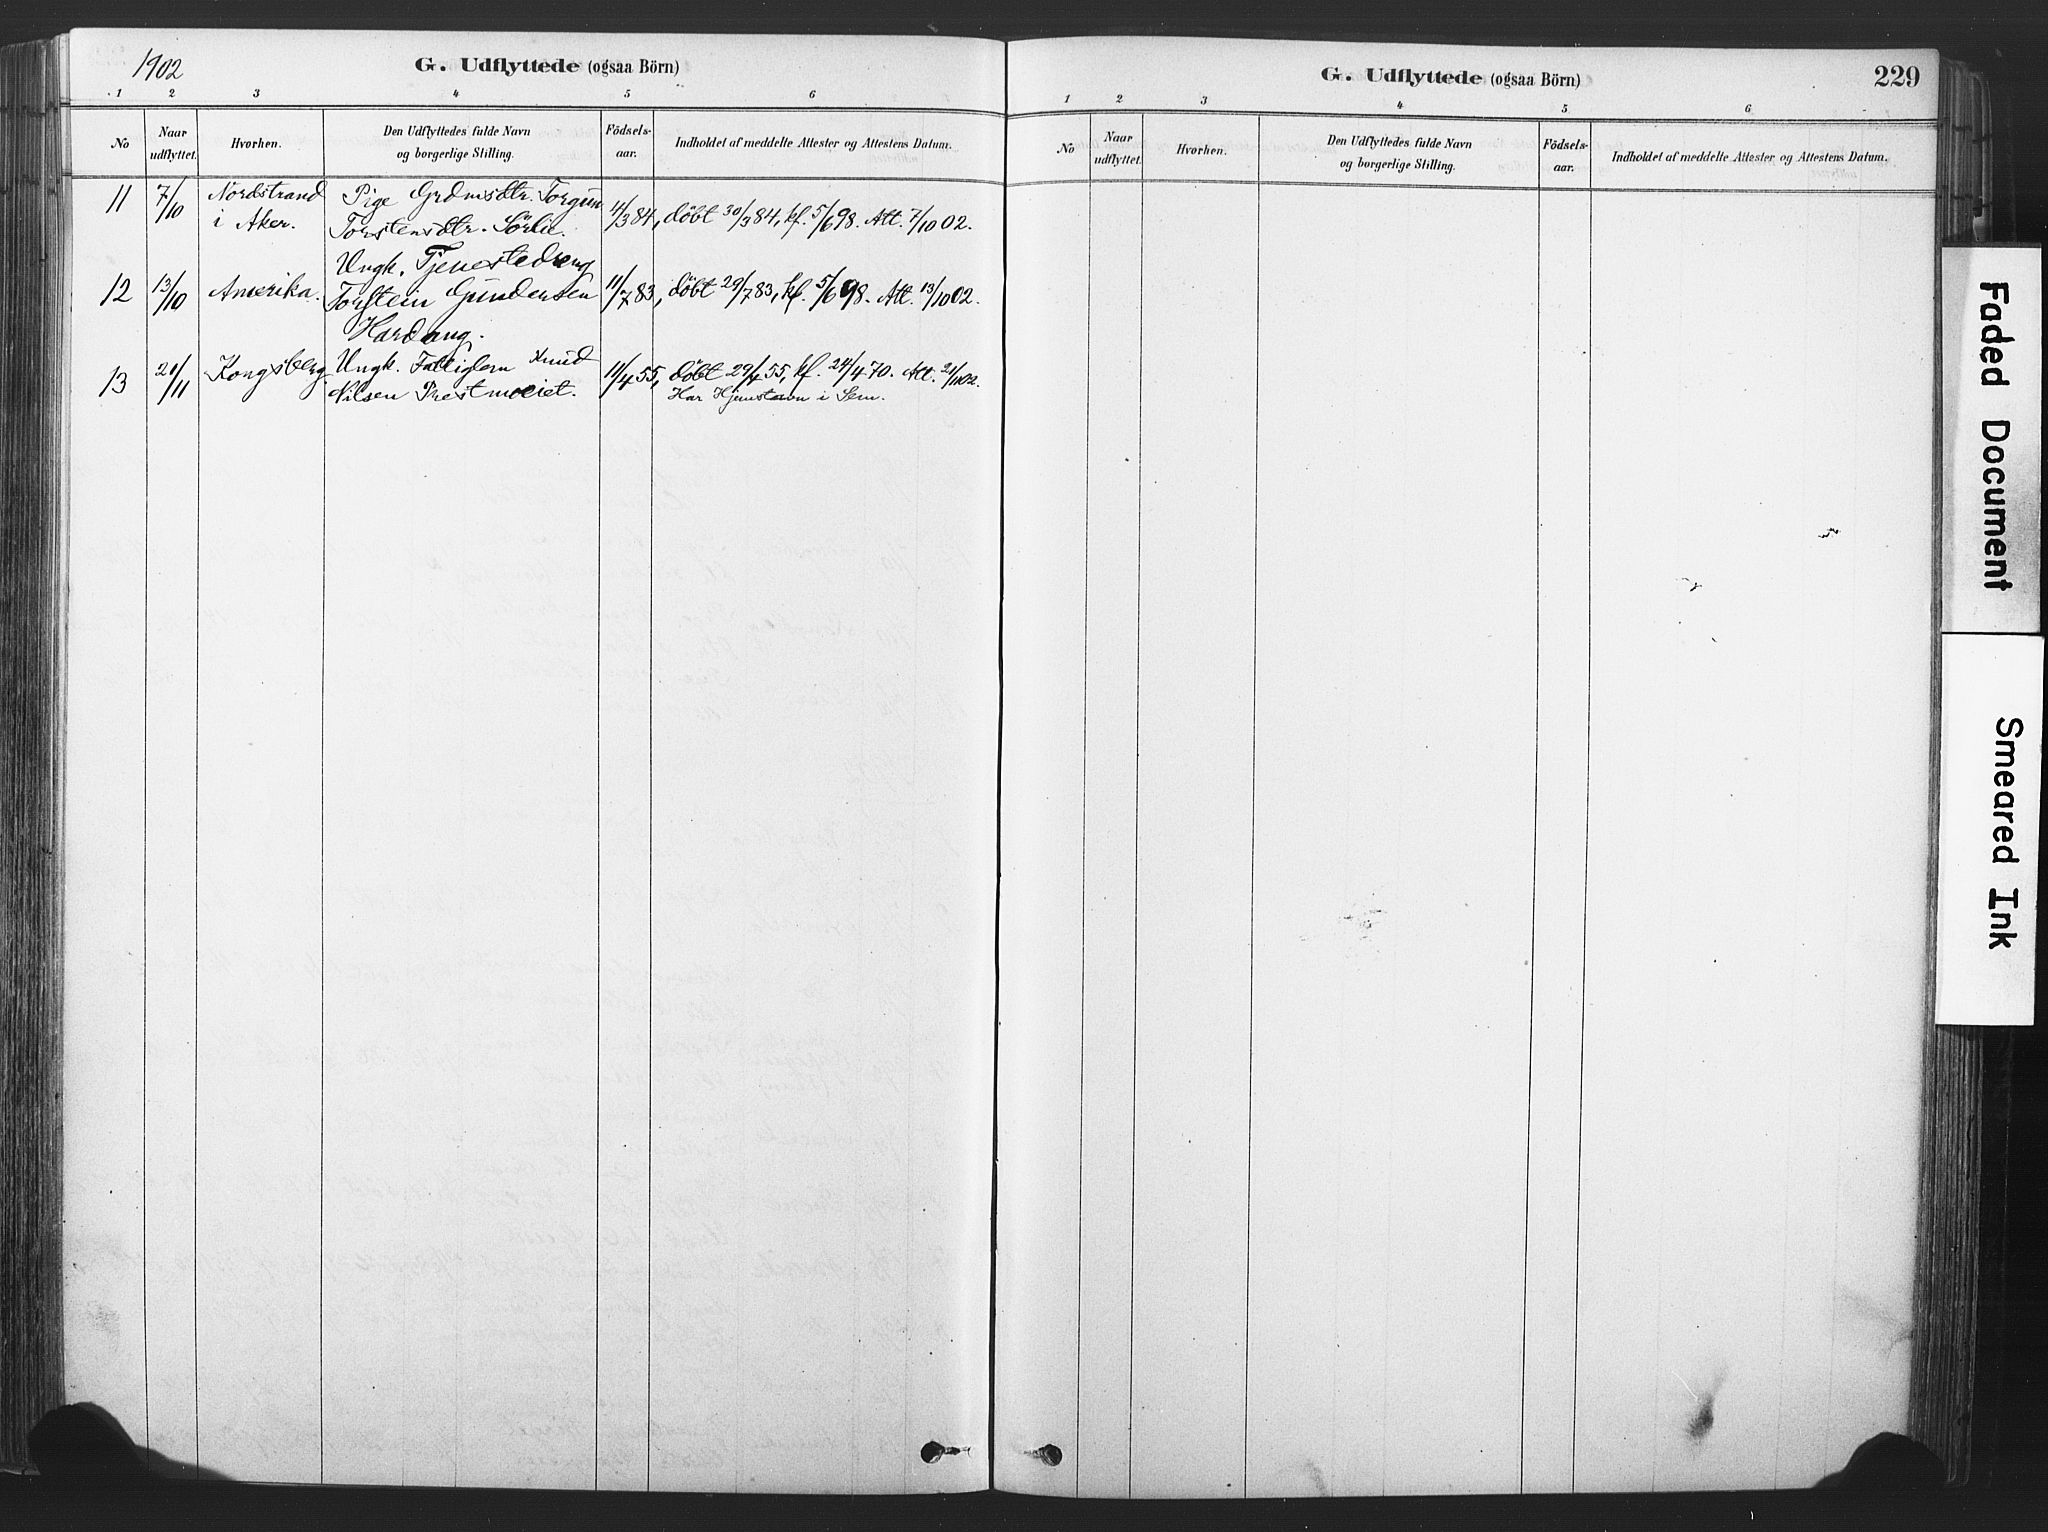 1902
G. Udflyttede (ogsaa Börn)
1 2 3 4 5 6
No
Naar udflyttet.
Hvorhen.
Den Udflyttedes fulde Navn og borgerlige Stilling.
Födsels-aar.
Indholdet af meddelte Attester og Attestens Datum.
11 7/10 Nordstrand Pige Grdmsdtr. Torgun 11/3 84, döbt 30/3 84, kf. 5/6 98. Att. 7/10 02.
i Aker. Torstensdtr. Sörlie.
Ungk. Tjenestedreng
12 13/10 Amerika. Torstein Gundersen 11/7 83, döbt 29/7 83, kf. 5/6 98. Att. 13/10 02.
Hardang.
13 21/11 Kongsberg Ungk. Fattiglem Knud 11/4 55, döbt 29/4 55, kf. 24/4 70. Att. 21/11 02.
Nilsen Prestmoeiet. Har Hjemstavn i Sem.
G. Udflyttede (ogsaa Börn)
229
1 2 3 4 5 6
No
Naar udflyttet.
Hvorhen.
Den Udflyttedes fulde Navn og borgerlige Stilling.
Födsels-aar.
Indholdet af meddelte Attester og Attestens Datum.
Faded Document
Smeared Ink